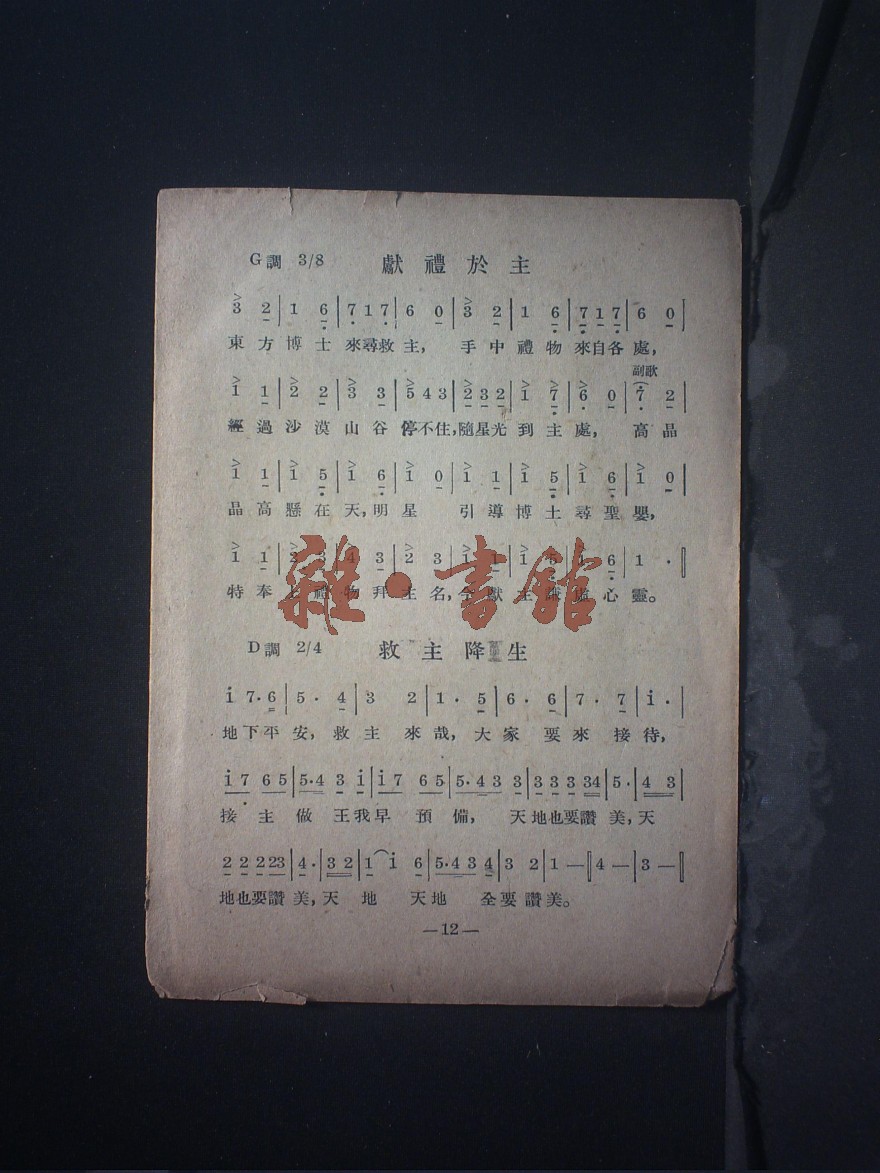 G調 3/8 獻禮於主
3 2 | 1 6 | 7 1 7 | 6 0 | 3 2 | 1 6 | 7 1 7 | 6 0 |
東方博士來尋救主, 手中禮物來自各處,
副歌
1 1 | 2 2 | 3 3 | 5 4 3 | 2 3 2 | 1 7 | 6 0 | 7 2 |
經過沙漠山谷停不住, 隨星光到主處, 高晶
1 1 | 1 5 | 1 6 | 1 0 | 1 1 | 1 5 | 1 6 | 1 0 |
晶高懸在天, 明星 引導博士尋聖嬰,
1 1 | 2 3 | 4 3 | 2 3 | 1 1 | 1 5 | 1 6 | 1 · ‖
特奉 禮物拜主名, 獻主 心靈。
雜·書館
D調 2/4 救主降生
i 7·6 | 5· 4 | 3 2 | 1· 5 | 6· 6 | 7· 7 | i· |
地下平安, 救主來哉, 大家要來接待,
i 7 6 5 | 5·4 3 i | i 7 6 5 | 5·4 3 3 | 3 3 3 34 | 5· | 4 3 |
接主做王我早預備, 天地也要讚美, 天
2 2 2 23 | 4· | 3 2 | 1 i 6 | 5·4 3 4 | 3 2 | 1 — ‖ 4 — | 3 — ‖
地也要讚美, 天地 天地 全要讚美。
—12—